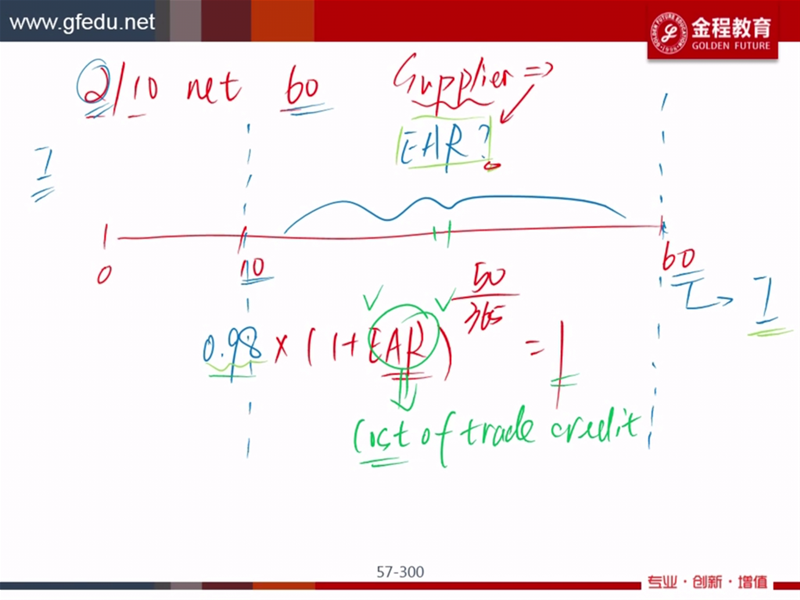 www.gfedu.net
金程教育
GOLDEN FUTURE
2/10 net 60 Supplier ⇒
EAR?
1
0 10 60
0.98 × (1 + EAR)^50/365 = 1
Cost of trade credit
57-300
专业·创新·增值